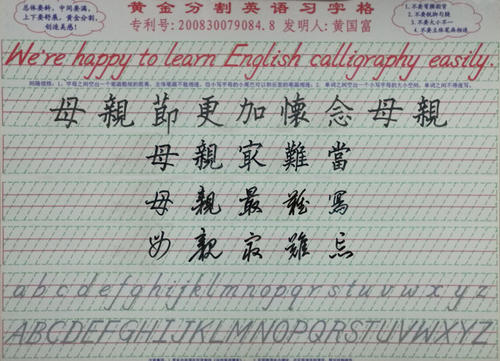 总体要斜，中间要满，
上下要舒展，黄金分割，
创造美感！
黄金分割英语习字格
专利号:200830079084.8 发明人:黄国富
1.不要弯腰驼背
3.不要大小不一
4.不要主体笔画相连
We're happy to learn English calligraphy easily.
母親節更加懷念母親
母親㝡難當
母親最難寫
母親㝡難忘
a b c d e f g h i j k l m n o p q r s t u v w x y z
A B C D E F G H I J K L M N O P Q R S T U V W X Y Z